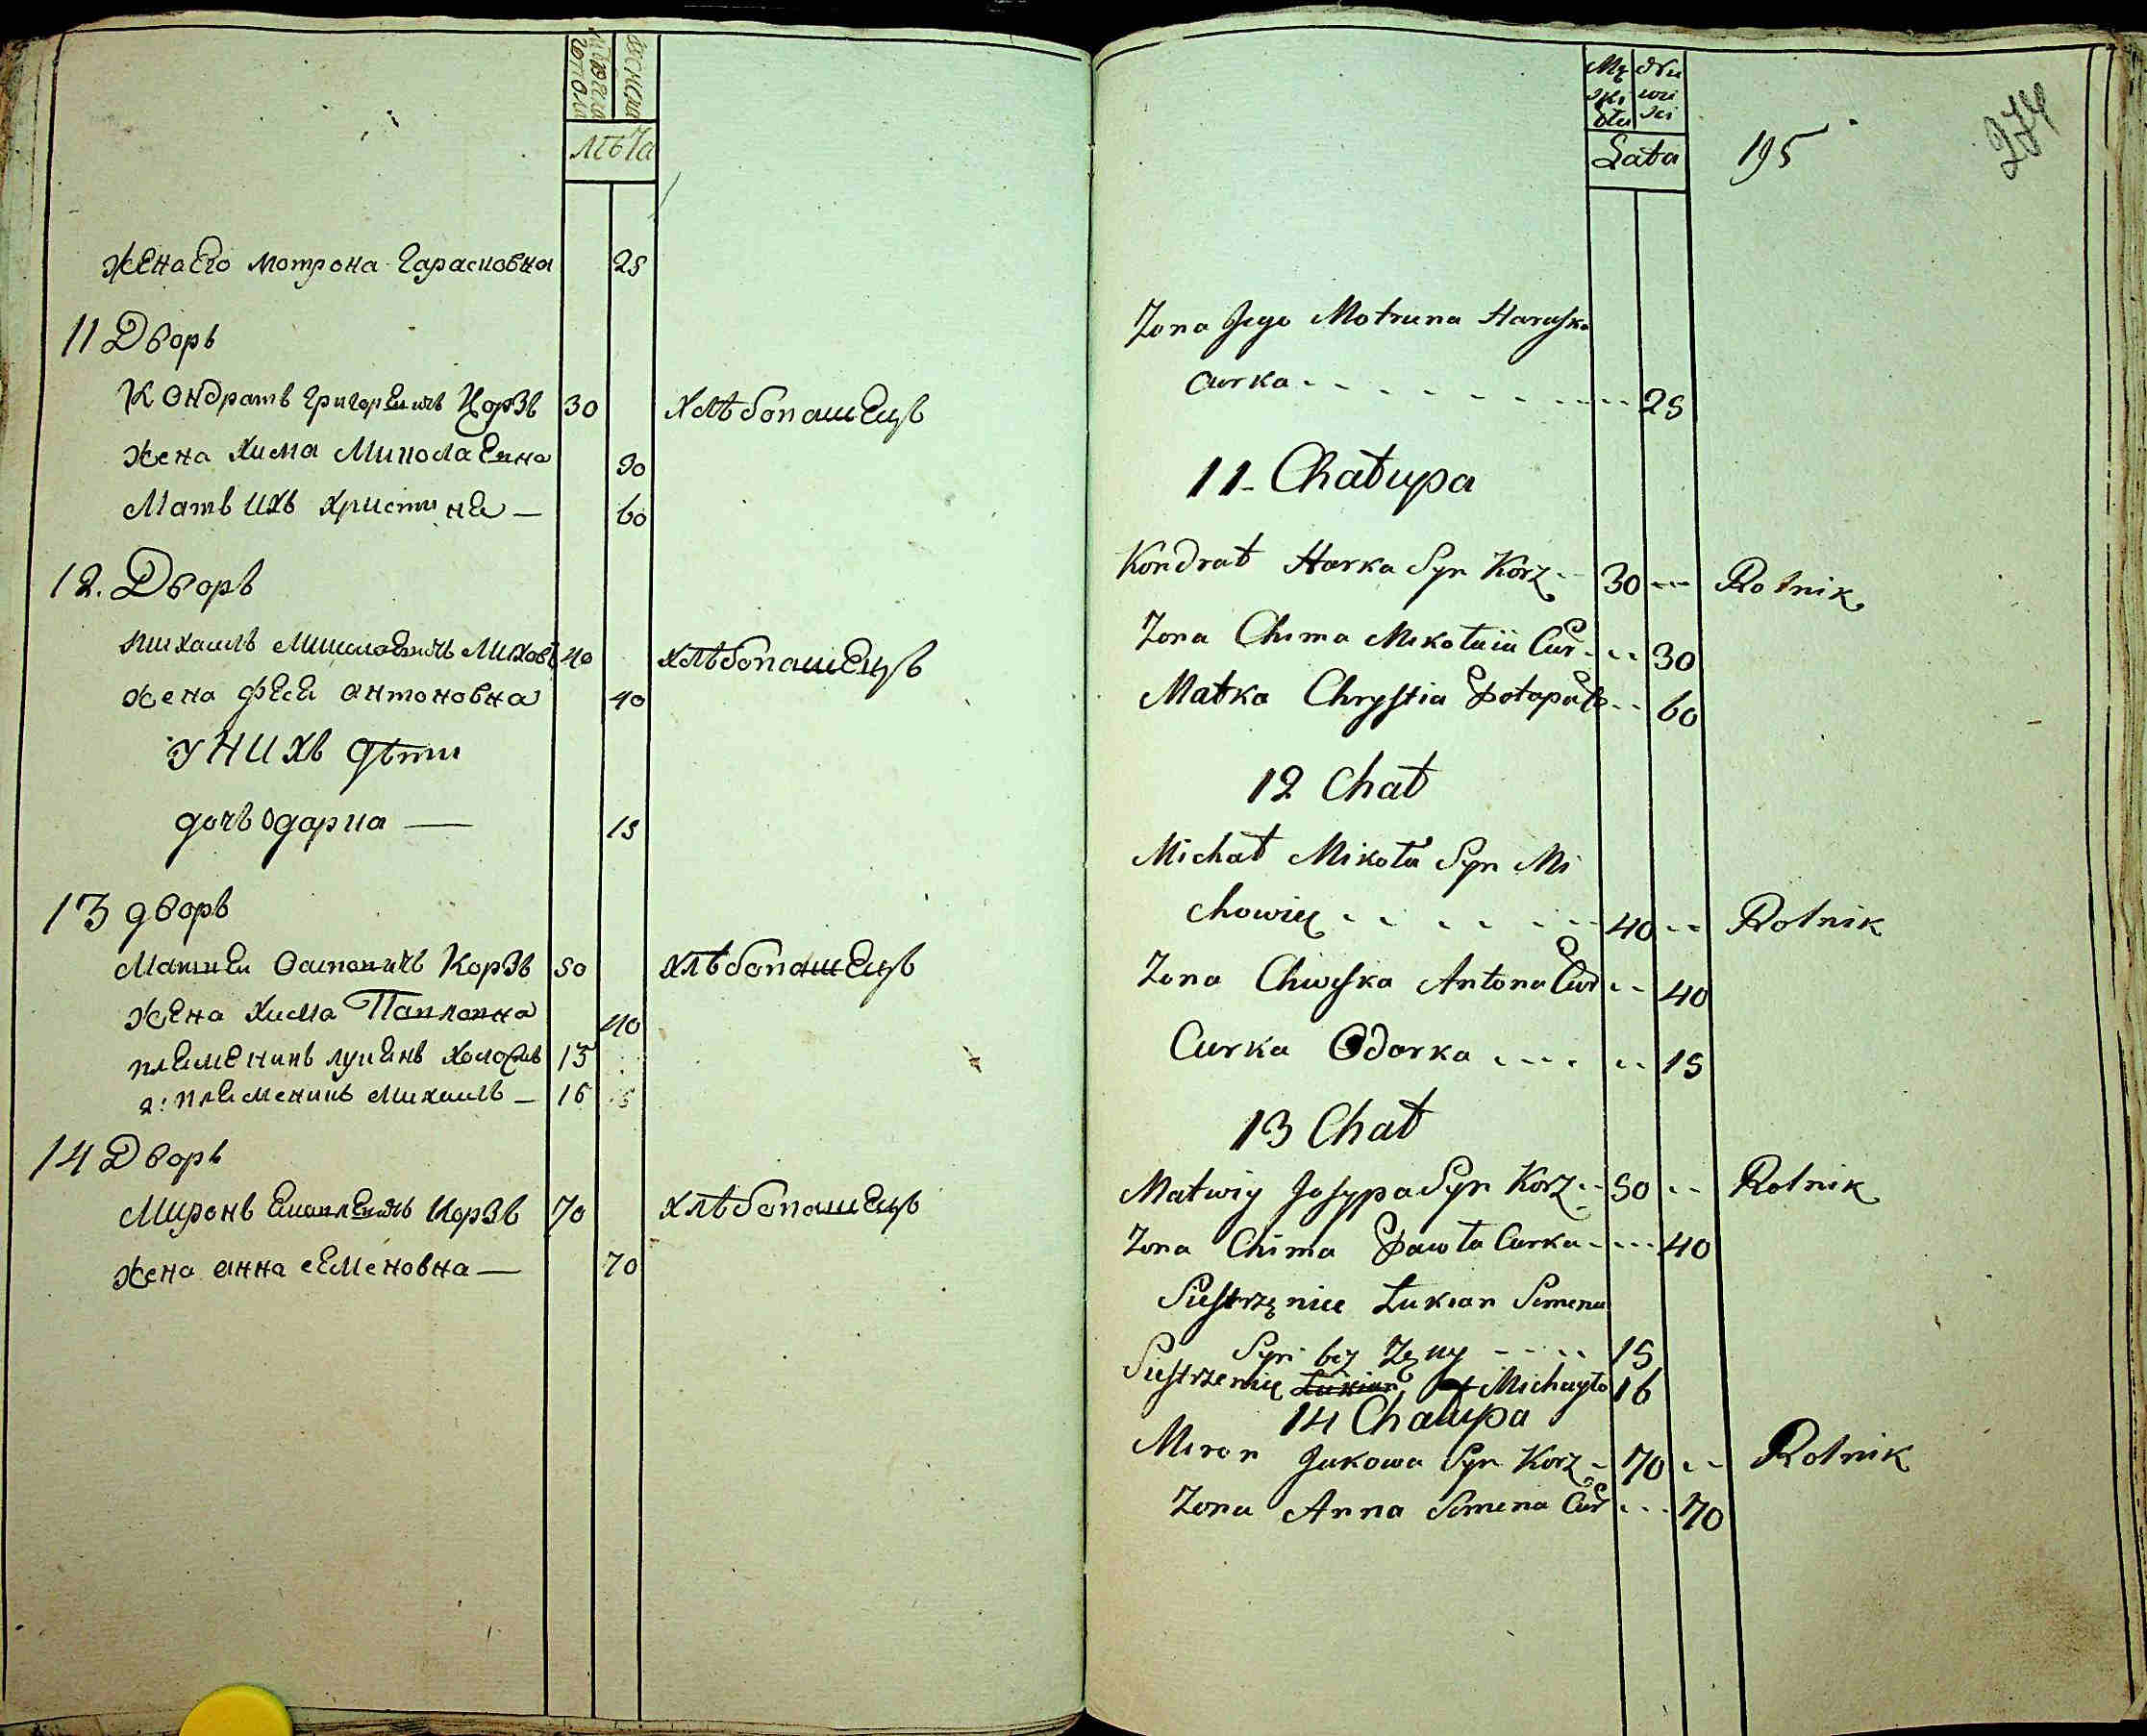 мужеска
пола
женска
лѣта
жена его мотрона гарасиовна 25
11 Дворъ
Кондратъ григорьевичъ Корзъ 30 хлѣбопашецъ
жена хима Миколаевна 30
Мать ихъ христина — 60
12. Дворъ
михаилъ Миколаевичъ Миховецъ 40 хлѣбопашецъ
жена феся антоновна 40
у них дѣти
дочь одариа — 15
13 дворъ
Матвеи Осиповичъ Корзъ 50 хлѣбопашецъ
жена хима Павловна 40
племенникъ лукянъ холостъ 15
2: племенникъ михаилъ — 16
14 Дворъ
Миронъ Яковлевичъ Корзъ 70 хлѣбопашецъ
жена анна семеновна — 70
Męzkiey
Niewieści
Lata
195
274
Zona Jego Motruna Haraska
Curka 25
11 - Chałupa
Kondrat Harka Syn Korz 30 -- Rolnik
Zona Chima Mikołaiu Cur 30
Matka Chrystia Potapa C 60
12 Chał
Michał Mikoła Syn Mi
chowiec 40 -- Rolnik
Zona Chweska Antona Cur 40
Curka Odorka 15
13 Chał
Matwiy Josypa Syn Korz 50 -- Rolnik
Zona Chima Pawła Curka 40
Siestrzeniec Łukian Semena
Syn bez Zeny 15
Siestrzeniec Łukian Michayło 16
14 Chałupa
Miron Jakowa Syn Korz 70 -- Rolnik
Zona Anna Semena Cur 70